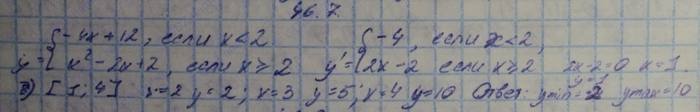 46.7.
y = { -4x+12, если x<2 y' = { -4, если x<2,
x² - 2x+2, если x ≥ 2 2x-2 если x ≥ 2 2x-2=0 x=1
в) [1; 4] x=2 y=2; x=3 y=5; x=4 y=10 Ответ: ymin=2 ymax=10